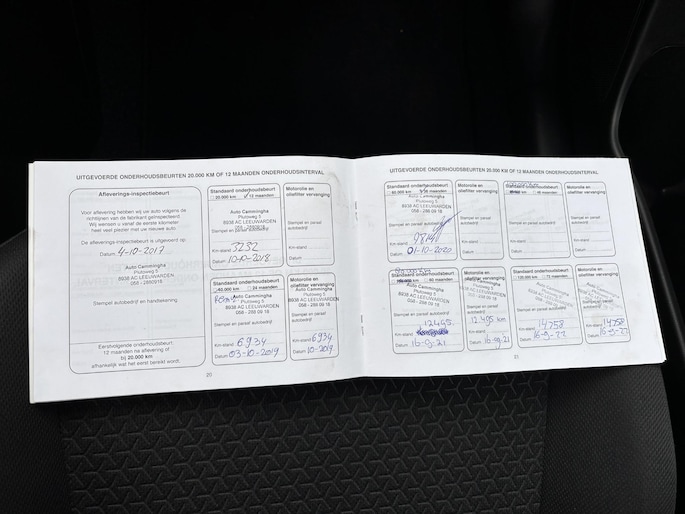 UITGEVOERDE ONDERHOUDSBEURTEN 20.000 KM OF 12 MAANDEN ONDERHOUDSINTERVAL
Afleverings-inspectiebeurt
Voor aflevering hebben wij uw auto volgens de
richtlijnen van de fabrikant geïnspecteerd.
Wij wensen u vanaf de eerste kilometer
heel veel plezier met uw nieuwe auto.
De afleverings-inspectiebeurt is uitgevoerd op:
Datum: 4-10-2017
Auto Cammingha
Plutoweg 5
8938 AC LEEUWARDEN
058 - 2880918
Stempel autobedrijf en handtekening
Eerstvolgende onderhoudsbeurt:
12 maanden na aflevering of
bij 20.000 km
afhankelijk wat het eerst bereikt wordt.
Standaard onderhoudsbeurt
20.000 km 12 maanden
Auto Cammingha
Plutoweg 5
8938 AC LEEUWARDEN
Stempel en paraaf autobedrijf
Km-stand 3232
Datum 10-10-2018
Motorolie en
oliefilter vervanging
Stempel en paraaf
autobedrijf
Km-stand
Datum
Standaard onderhoudsbeurt
40.000 km 24 maanden
Auto Cammingha
Plutoweg 5
8938 AC LEEUWARDEN
058 - 288 09 18
Stempel en paraaf autobedrijf
Km-stand 6934
Datum 03-10-2019
Motorolie en
oliefilter vervanging
Auto Cammingha
Plutoweg 5
8938 AC LEEUWARDEN
058 - 288 09 18
Stempel en paraaf
autobedrijf
Km-stand 6934
Datum 10-2019
20
UITGEVOERDE ONDERHOUDSBEURTEN 20.000 KM OF 12 MAANDEN ONDERHOUDSINTERVAL
Standaard onderhoudsbeurt
60.000 km 36 maanden
Auto Cammingha
Plutoweg 5
8938 AC LEEUWARDEN
058 - 288 09 18
Stempel en paraaf autobedrijf
Km-stand
Datum 01-10-2020
Motorolie en
oliefilter vervanging
Stempel en paraaf
autobedrijf
Km-stand
Datum
Standaard onderhoudsbeurt
48 maanden
Stempel en paraaf autobedrijf
Km-stand
Datum
Motorolie en
oliefilter vervanging
Stempel en paraaf
autobedrijf
Km-stand
Datum
Standaard onderhoudsbeurt
60 maanden
Auto Cammingha
Plutoweg 5
8938 AC LEEUWARDEN
058 - 288 09 18
Stempel en paraaf autobedrijf
12495
Km-stand
Datum 16-9-21
Motorolie en
oliefilter vervanging
Stempel en paraaf
autobedrijf
12.495 km
Km-stand
Datum 16-9-21
Standaard onderhoudsbeurt
120.000 km 72 maanden
Stempel en paraaf autobedrijf
Km-stand 14758
Datum 16-9-22
Motorolie en
oliefilter vervanging
Km-stand 14758
Datum 16-9-22
21